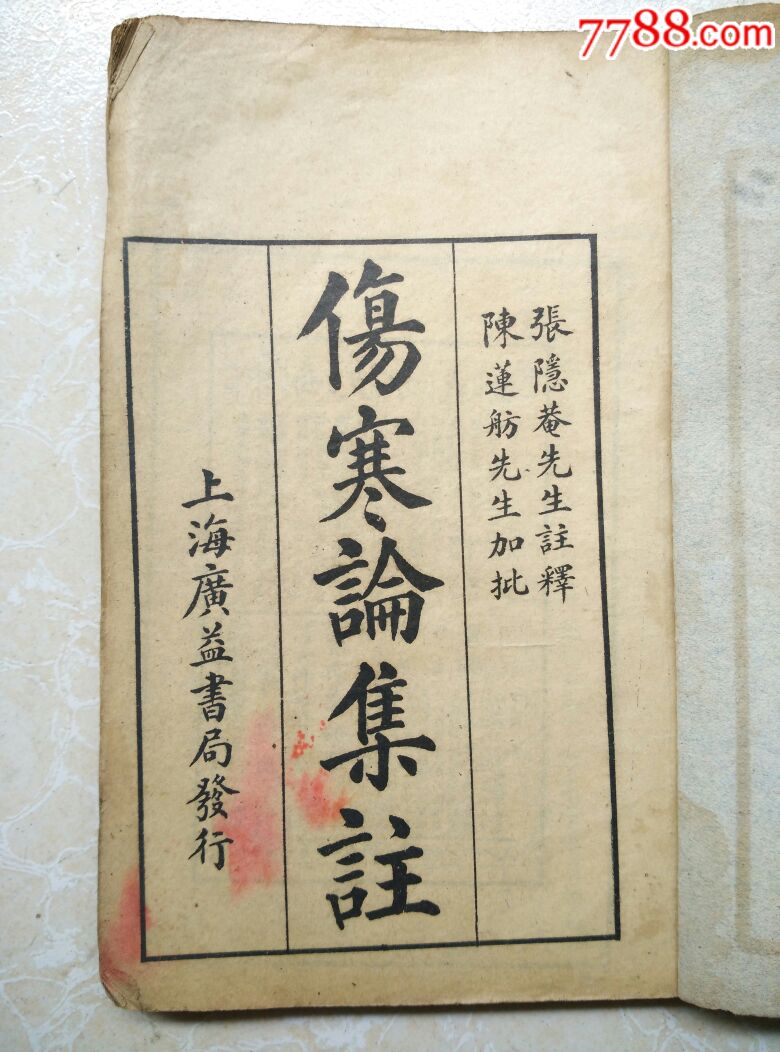 7788.com
張隱菴先生註釋
陳蓮舫先生加批
傷寒論集註
上海廣益書局發行